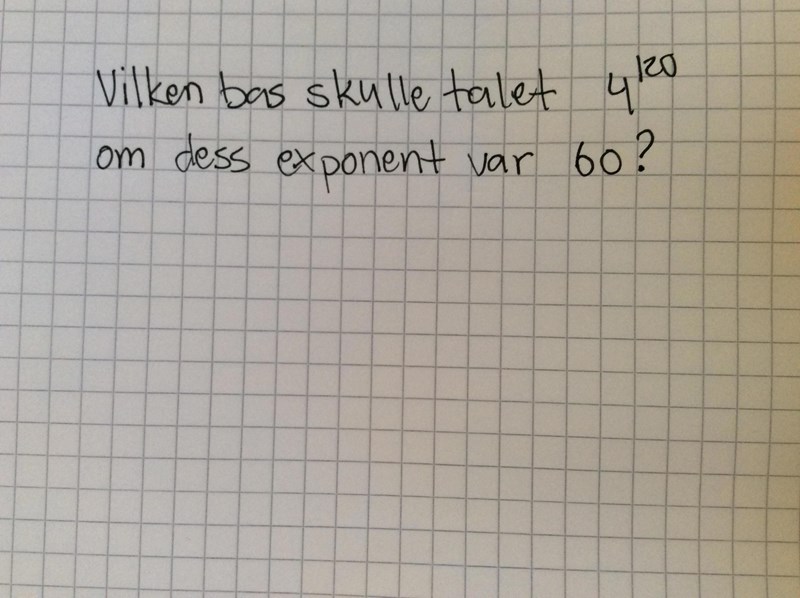 Vilken bas skulle talet 4¹²⁰
om dess exponent var 60?